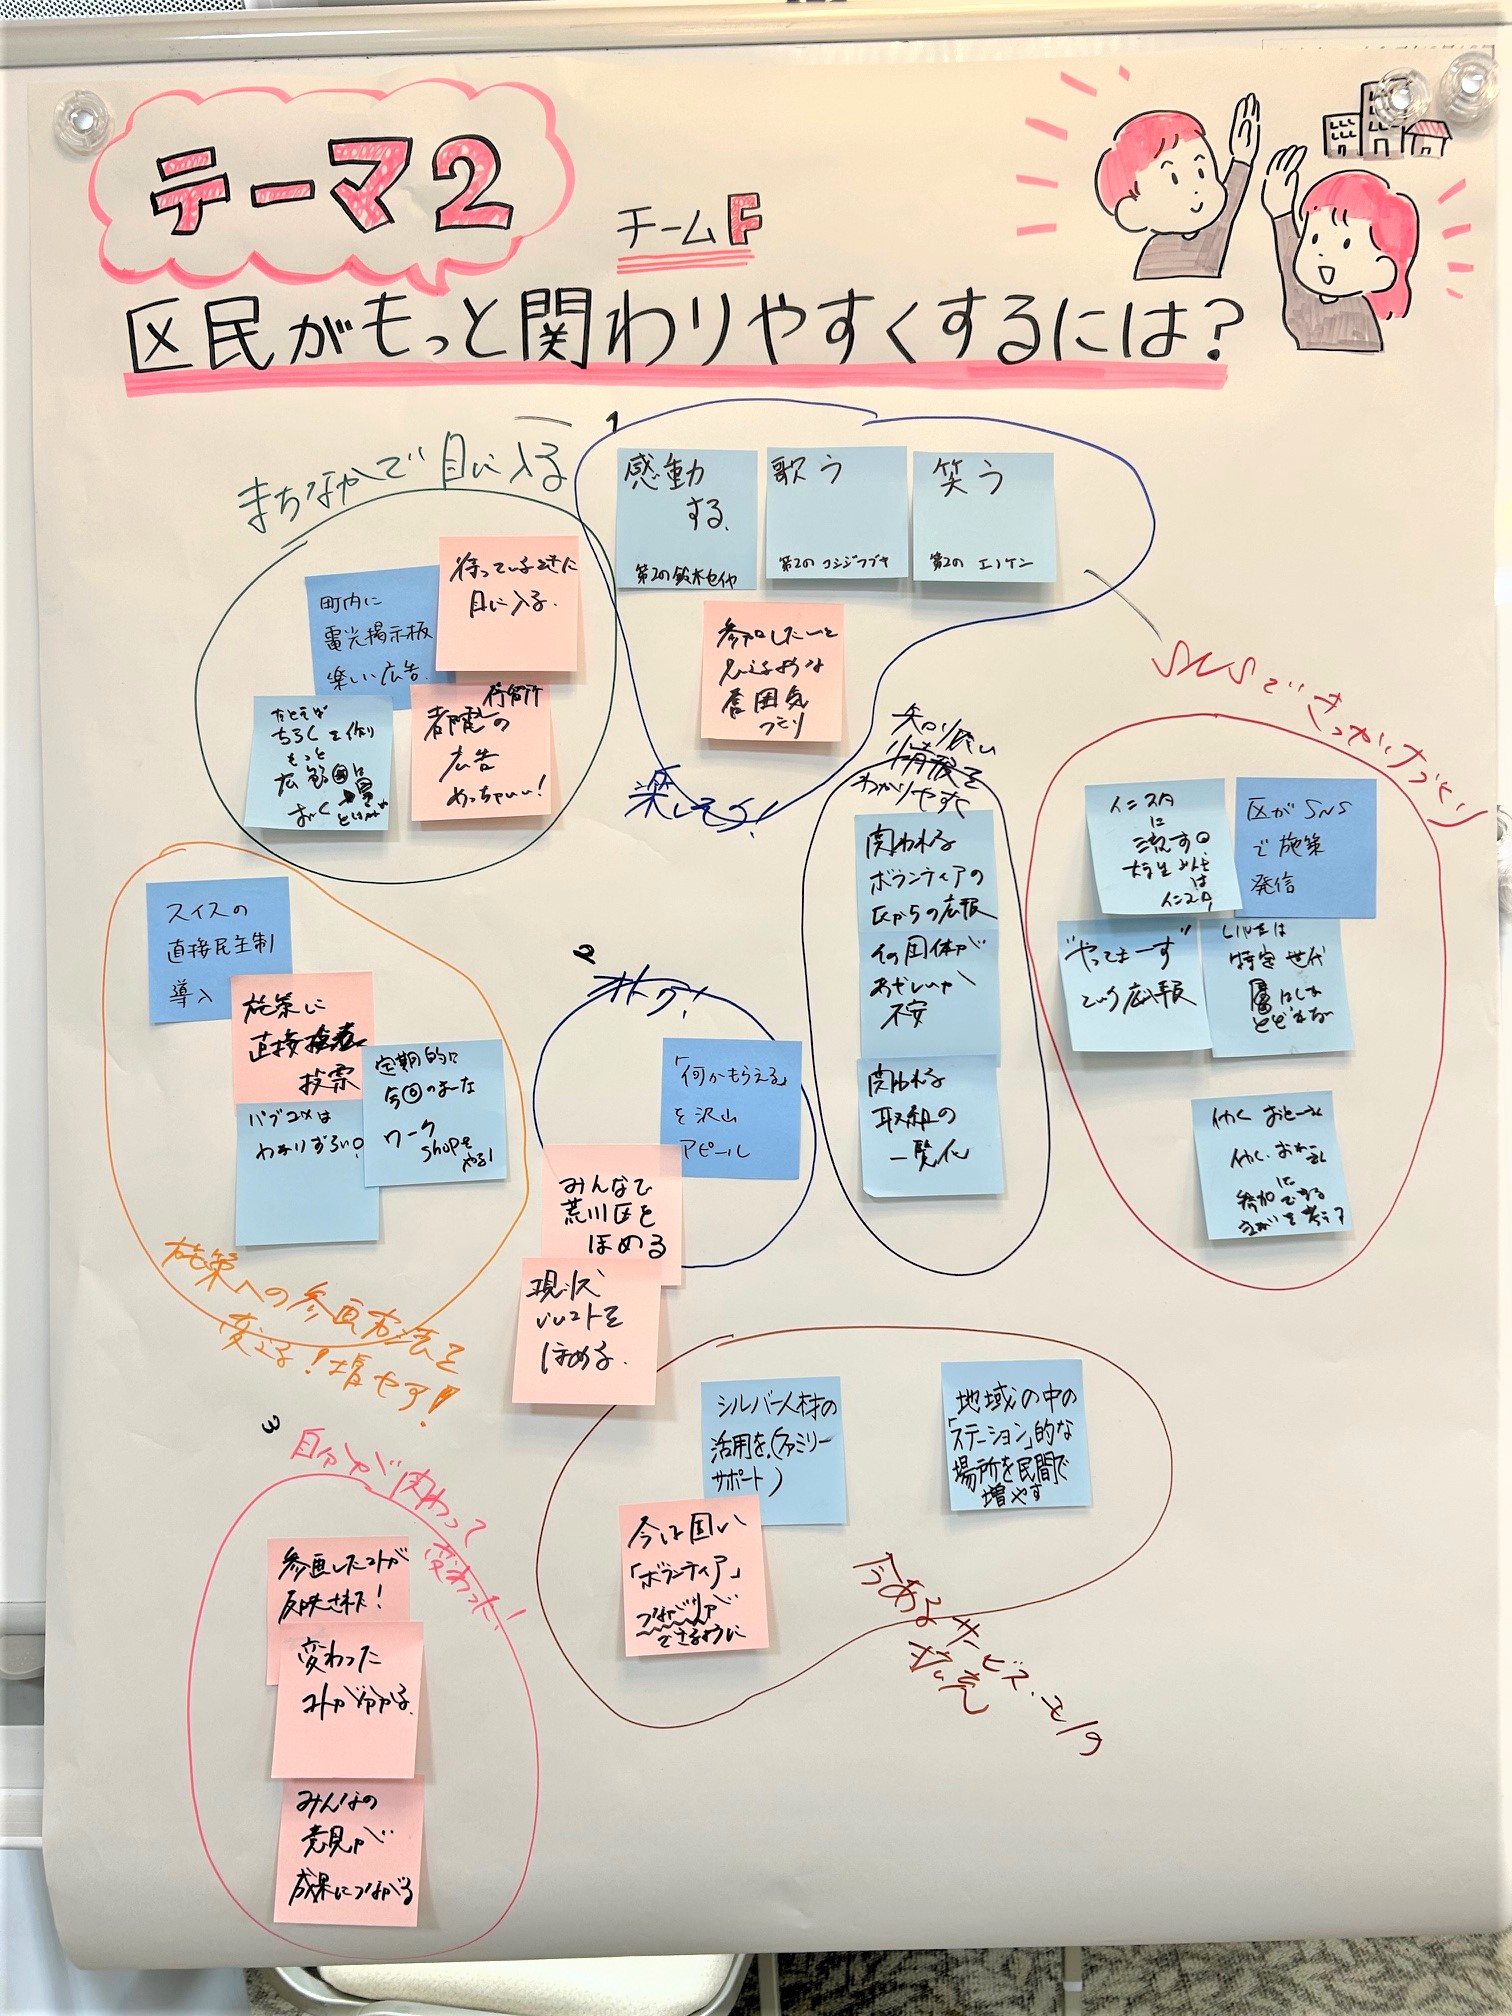 テーマ2
チームF
区民がもっと関わりやすくするには?
まちなかで目に入る
町内に
電光掲示板
楽しい広告
待っているときに
目に入る。
たとえば
もっと
都電の
停留所
広告
めっちゃいい!
1
感動
する。
第2の鈴木セイヤ
歌う
第2の コシジフブキ
笑う
第2の エノケン
参加したいと
思えるような
雰囲気
つくり
楽しそう!
知りたい
情報を
わかりやすく
関われる
ボランティアの
区からの広報
その団体が
あやしいか
不安
関われる
取組の
一覧化
SNSできっかけづくり
インスタ
に
流す。
大学生みんな
は
インスタ
区がSNS
で施策
発信
"やってまーす"
という広報
LINEは
特定世代
層にしか
とどかない
参加できる
スイスの
直接民主制
導入
施策に
直接
投票
パブコメは
わかりづらい。
定期的に
今回のような
ワーク
shopを
やる!
施策への参画方法を
変える!増やす!
2
オトク!
「何かもらえる」
を沢山
アピール
みんなで
荒川区を
ほめる
現状
いいコトを
ほめる。
シルバー人材の
活用を。(ファミリー
サポート)
地域の中の
「ステーション」的な
場所を民間で
増やす
今は固い
「ボランティア」
つながりが
できるように
今あるサービス・モノの
拡充
3
自分が関わって
変わった!
参画したコトが
反映された!
変わった
コトが分かる。
みんなの
意見が
成果につながる